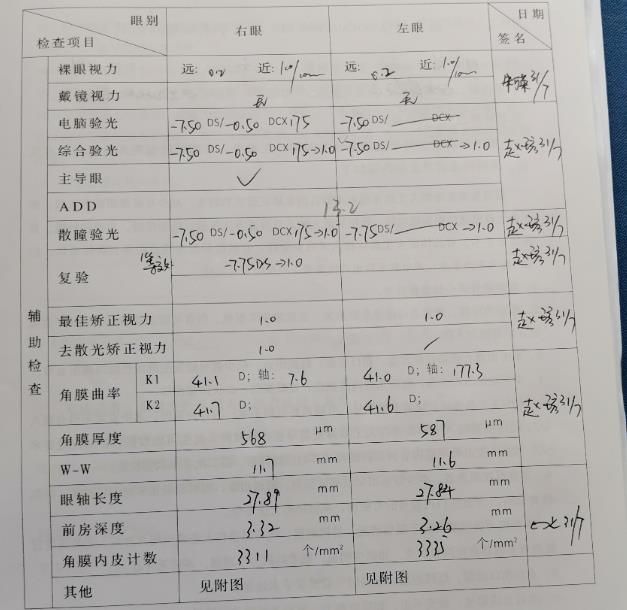 眼别 右眼 左眼 日期
检查项目 签名
辅助检查
裸眼视力 远: 0.2 近: 1.0/10cm 远: 0.2 近: 1.0/10cm 31/7
戴镜视力
电脑验光 -7.50 DS/ -0.50 DCX 175 -7.50 DS/ DCX
综合验光 -7.50 DS/ -0.50 DCX 175→1.0 -7.50 DS/ DCX →1.0 31/7
主导眼 ✓
ADD 13.2
散瞳验光 -7.50 DS/ -0.50 DCX 175→1.0 -7.75 DS/ DCX →1.0 31/7
复验 -7.75DS→1.0 31/7
最佳矫正视力 1.0 1.0 31/7
去散光矫正视力 1.0 /
角膜曲率 K1 41.1 D; 轴: 7.6 41.0 D; 轴: 177.3
K2 41.7 D; 41.6 D; 31/7
角膜厚度 568 μm 587 μm
W-W 11.7 mm 11.6 mm
眼轴长度 27.89 mm 27.84 mm
前房深度 3.32 mm 3.26 mm 31/7
角膜内皮计数 3311 个/mm² 3335 个/mm²
其他 见附图 见附图